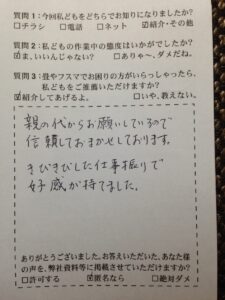 質問1:今回私どもをどちらでお知りになりましたか?
□チラシ □電話 □ネット ☑紹介・その他
質問2:私どもの作業中の態度はいかがでしたか?
☑ま、いいんじゃない? □ありゃ~、ダメだね。
質問3:畳やフスマでお困りの方がいらっしゃったら、
私どもをご推薦いただけますか?
☑紹介してあげるよ。 □いや、教えない。
親の代からお願いしているので
信頼しておまかせしております。
きびきびした仕事振りで
好感が持てました。
ありがとうございました。お答えいただいた、あなた様
の声を、弊社資料等に掲載させていただけますか?
□許可する ☑匿名なら □絶対ダメ